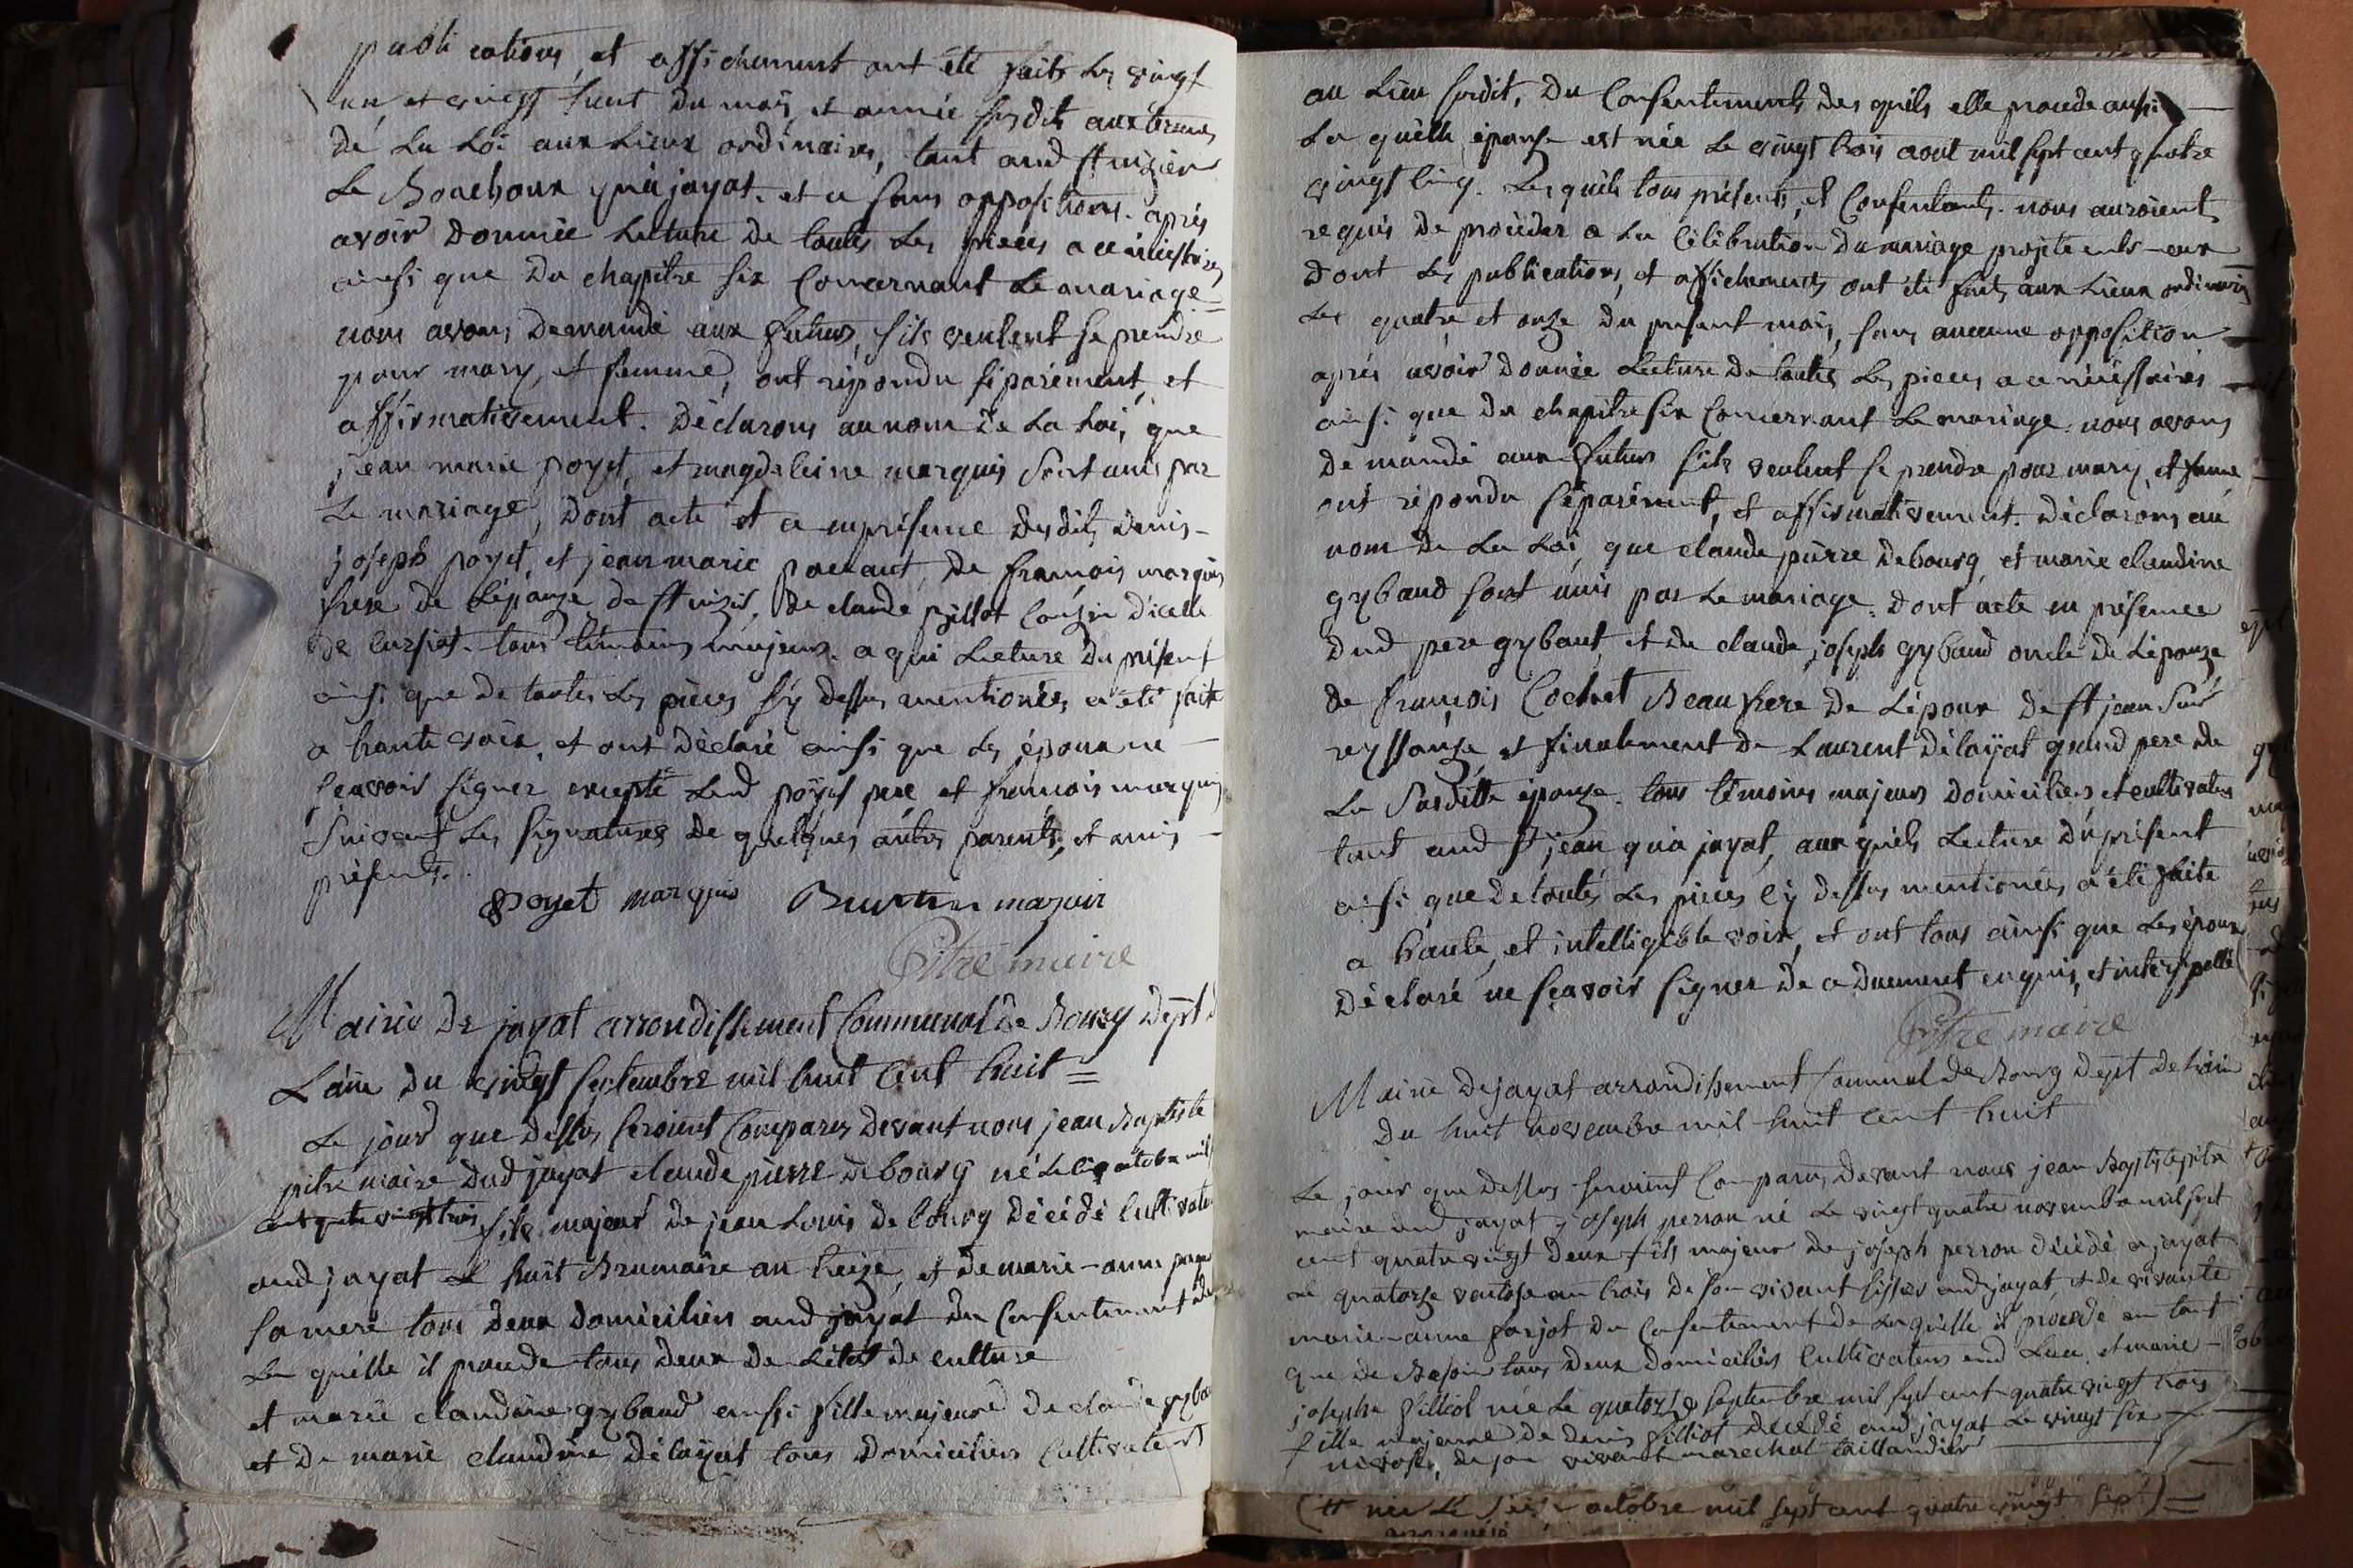 publications, et affichement ont été faits les vingt
un et vingt huit du mois et année susdits aux termes
de la loi aux lieux ordinaires, tant aud st nizier
le Bouchoux qu'a jayat. et ce sans oppositions. après
avoir donnée lecture de toutes les pieces a ce nécéssaires
ainsi que du chapitre six concernant le mariage =
nous avons demandé aux futurs, s'ils veulent se prendre
pour mary, et femme, ont répondu séparément, et
affirmativement. Déclarons au nom de la loi, que
jean marie poyet, et magdeleine marquis sont unis par
le mariage, dont acte et ce en présence desdits denis-
joseph poyet, et jean marie pacaut, de françois marquis
frere de l'épouze de st nizier, de claude pillot couzin d'icelle
de cursiat. tous témoins majeurs. a qui lecture du présent
ainsi que de toutes les pièces s'y dessus mentionées, a été faite
a haute voix, et ont déclaré ainsi que les époux ne -
scavoir signer excepté led poyet pere et francois marquis
suivent les signatures de quelques autres parents, et amis -
présents.
poyet marquis marquis
Pitre maire
Mairie de jayat arrondissement Communal de Bourg dept d
L'ain du vingt septembre mil huit cent huit =
Le jour que dessus seroient comparus devant nous jean Baptiste
pitre maire dud jayat claude pierre debourg né le octobre mil
cent quatre vingt trois fils majeur de jean Louis de bourg décédé cultivateur
aud jayat le huit Brumaire an treize, et de marie-anne
sa mere tous deux domiciliés aud jayat du consentement de
la quelle il procede tous deux de l'état de culture
et marie claudine gybaud aussi fille majeure de claude gybaud
et de marie claudine délayat tous domiciliés cultivateurs
au lieu susdit, du consentements des quels elle procede aussi —
La quelle épouse est née le vingt trois aout mil sept cent quatre
vingt cinq. Les quels tous présents, et consentants. nous auroient
requis de procéder a la célébration du mariage projeté entr-eux
dont les publications, et affichements ont été faits aux lieux ordinaires
les quatre et onze du present mois, sans aucune opposition —
après avoir donnée lecture de toutes les pieces a ce nécéssaires —
ainsi que du chapitre six concernant le mariage. nous avons
demandé aux futurs s'ils veulent se prendre pour mary, et femme,
ont répondu séparément, et affirmativement. Déclarons au
nom de la loi, que claude pierre debourg, et marie claudine
gybaud sont unis par le mariage. dont acte en présence
dud pere gybaut, et de claude joseph gybaud oncle de l'épouze
de françois Cochet Beaufrere de l'époux de st jean sur
reyssouze, et finalement de Laurent délayat grand pere de
la susditte épouze. tous témoins majeurs domiciliés et cultivateurs
tant aud st jean qu'a jayat, aux quels lecture du présent
ainsi que de toutes les pieces cy dessus mentionées, a été faite
a haute, et intelligible voix, et ont tous ainsi que les époux
déclaré ne sçavoir signer de ce duement enquis, et interpellé
Pitre maire
Mairie de jayat arrondissement Communal de Bourg dept de l'ain
du huit novembre mil huit cent huit
Le jour que dessus seroient comparus devant nous jean Baptiste pitre
maire aud jayat joseph perron né le vingt quatre novembre mil sept
cent quatre vingt deux fils majeur de joseph perron décédé a jayat
le quatorze ventose an trois de son vivant aud jayat, et de vivante
marie-anne farjot du consentement de la quelle il procede en tant
que de Besoin tous deux domiciliés cultivateurs aud lieu. et marie -
josephe filliol née le quatorze septembre mil sept cent quatre vingt trois
fille majeure de denis filliol décédé aud jayat le vingt six
nivose, de son vivant marechal taillandier
(# née le octobre mil sept cent quatre vingt sept) =